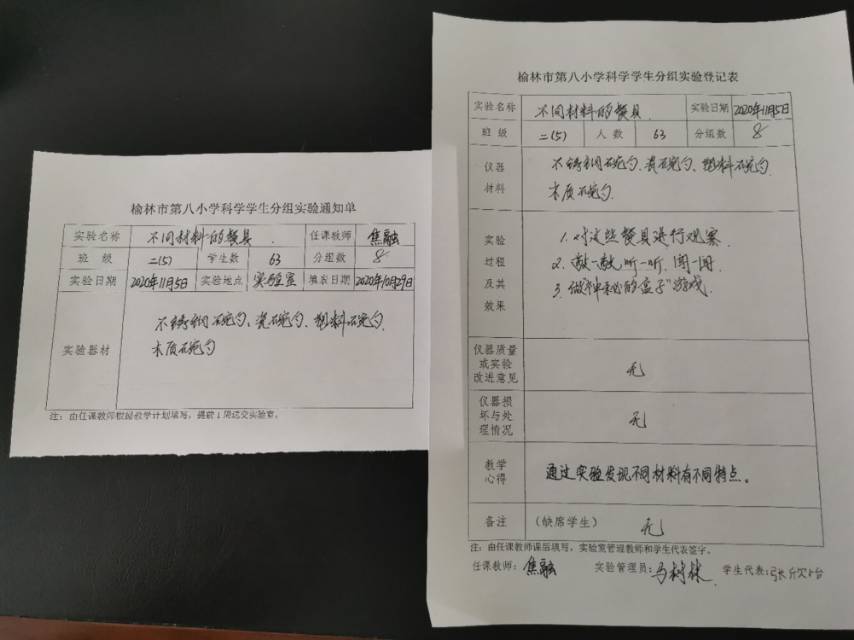 榆林市第八小学科学学生分组实验通知单
实验名称 不同材料的餐具. 任课教师 焦融
班 级 二(5) 学生数 63 分组数 8
实验日期 2020年11月5日 实验地点 实验室 填表日期 2020年10月29日
实验器材
不锈钢碗勺、瓷碗勺、塑料碗勺、
木质碗勺
注：由任课教师根据教学计划填写，提前1周送交实验室。
榆林市第八小学科学学生分组实验登记表
实验名称 不同材料的餐具. 实验日期 2020年11月5日
班 级 二(5) 人 数 63 分组数 8
仪器
材料
不锈钢碗勺、瓷碗勺、塑料碗勺、
木质碗勺.
实验
过程
及其
效果
1. 对这些餐具进行观察.
2. 敲一敲,听一听,闻一闻.
3. 做"神秘的盒子"游戏.
仪器质量
或实验
改进意见
无
仪器损
坏与处
理情况
无
教学
心得
通过实验发现不同材料有不同特点。
备注 (缺席学生) 无
注：由任课教师课后填写，实验室管理教师和学生代表签字。
任课教师：焦融 实验管理员：马树林 学生代表：张